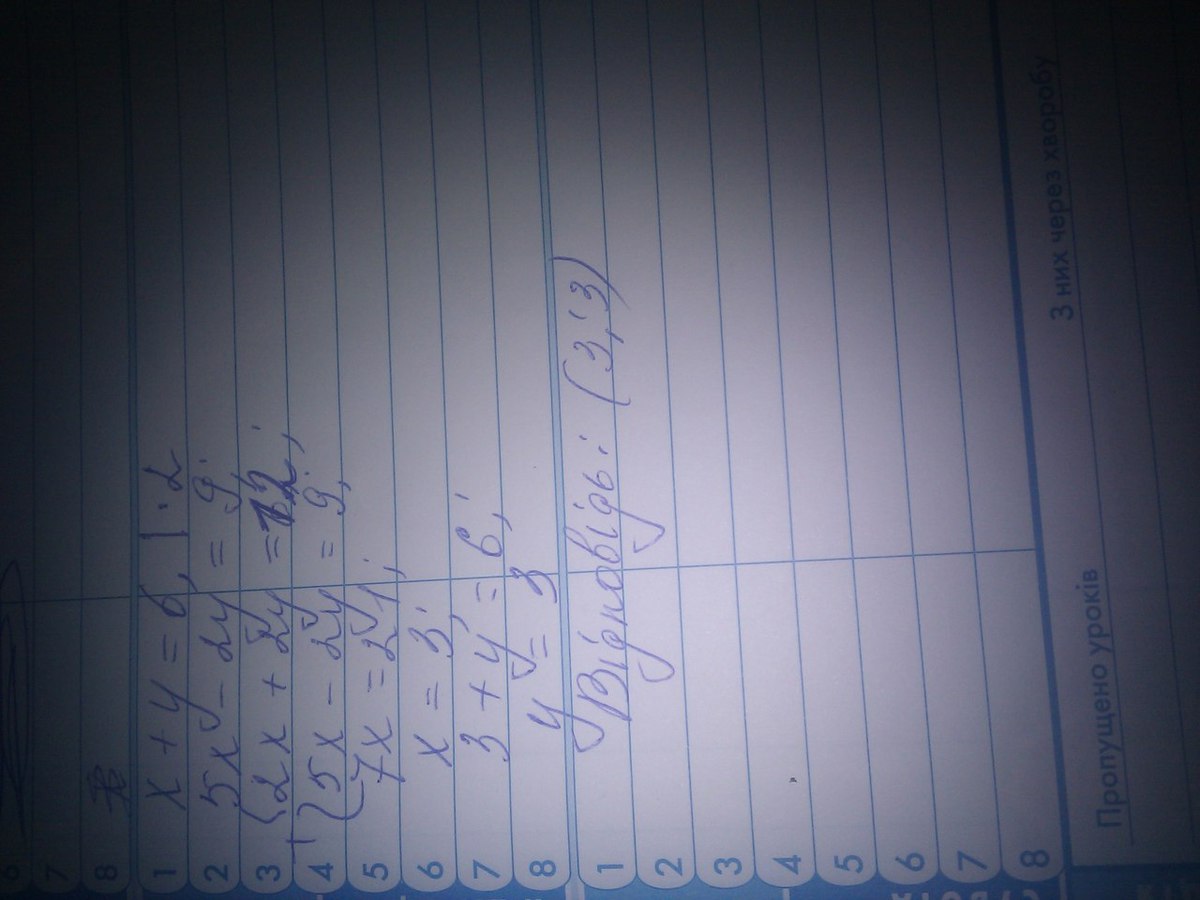 6
7
8
1 x + y = 6, | · 2
2 5x - 2y = 9;
3 { 2x + 2y = 12;
4 + { 5x - 2y = 9;
5 7x = 21;
6 x = 3;
7 3 + y = 6;
8 y = 3
1 Відповідь: (3; 3)
2
3
4
5
6
7
8
Пропущено уроків З них через хворобу